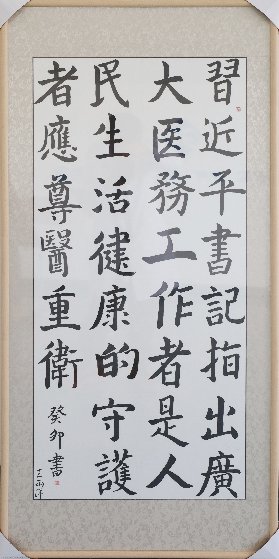 習近平書記指出廣
大医務工作者是人
民生活健康的守護
者應尊醫重衛
癸卯書